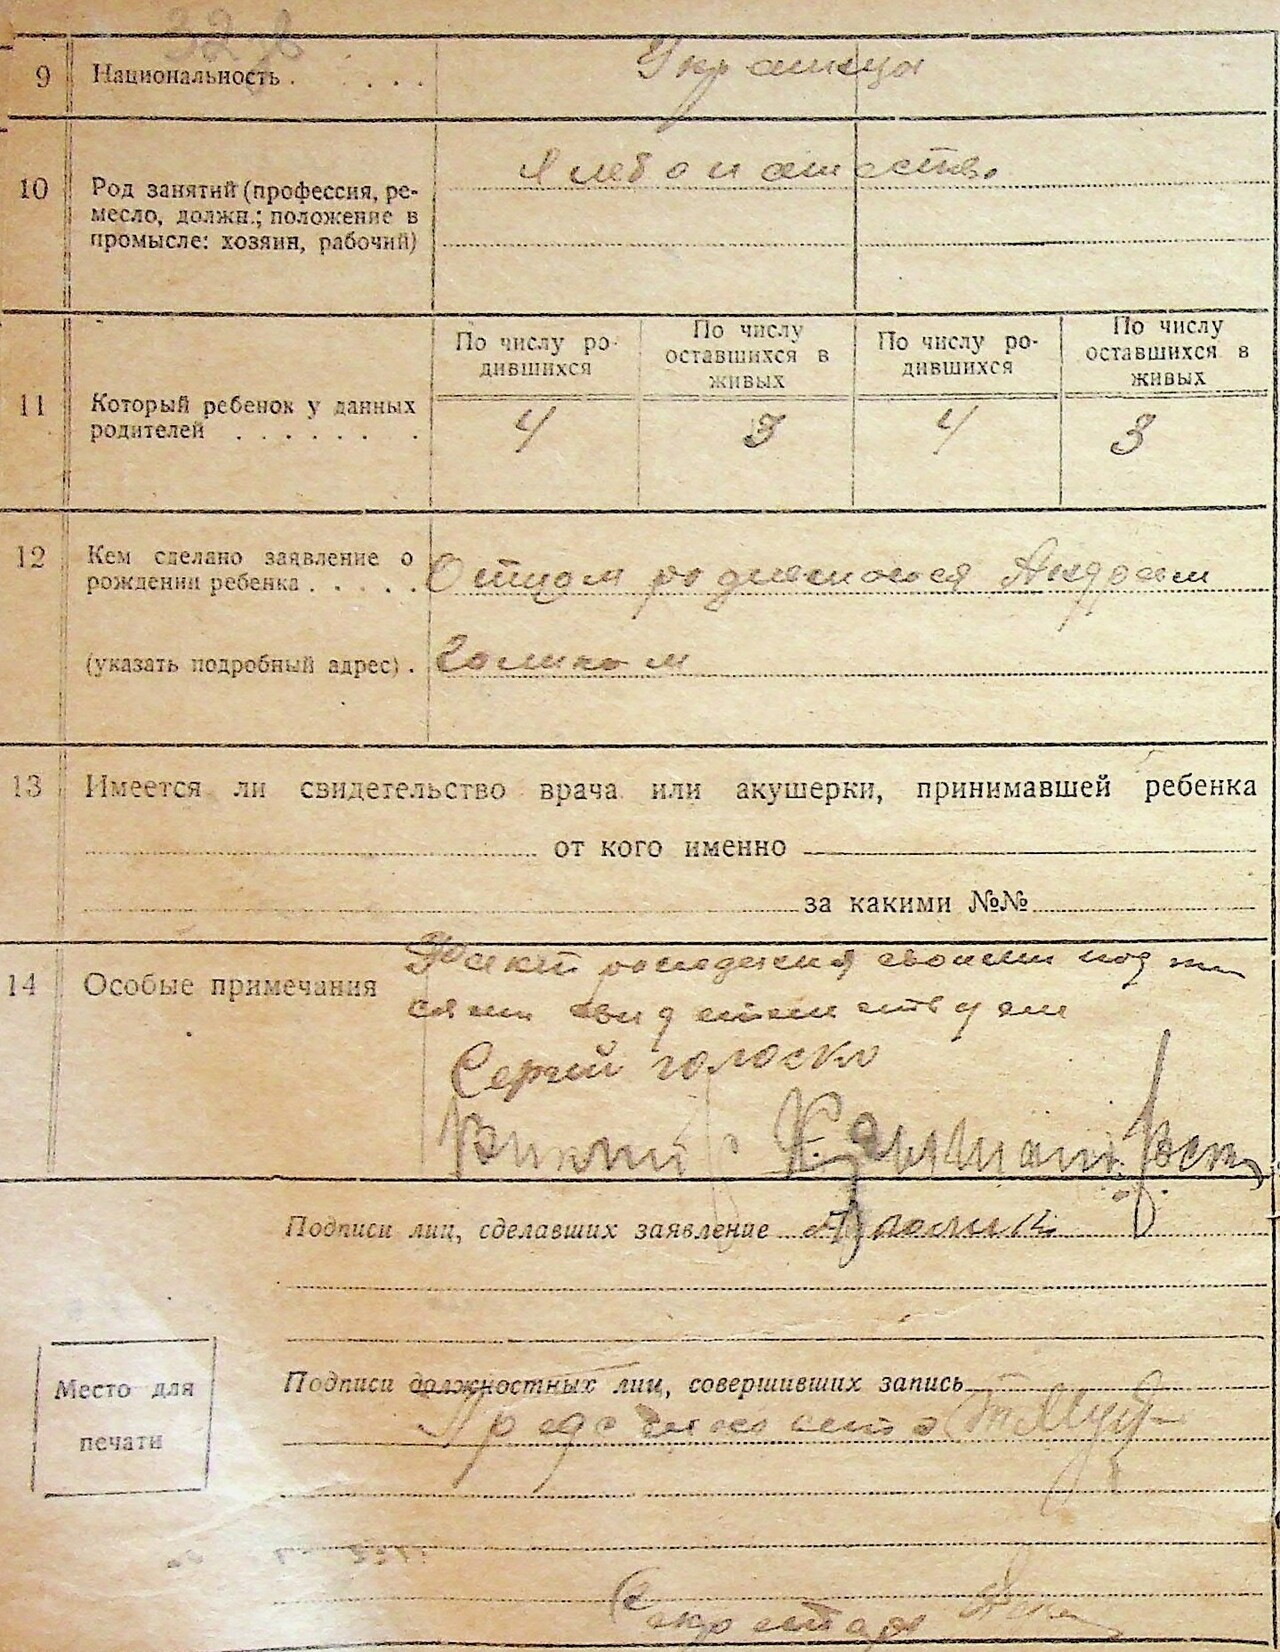 9 Национальность . . . . . Украинцы
10 Род занятий (профессия, ре-
месло, должн.; положение в
промысле: хозяин, рабочий)
Хлебопашество
По числу ро-
дившихся
По числу
оставшихся в
живых
По числу ро-
дившихся
По числу
оставшихся в
живых
11 Который ребенок у данных
родителей . . . . . . . .
4 3 4 3
12 Кем сделано заявление о
рождении ребенка . . . . .
Отцом родившегося Андреем
(указать подробный адрес) .
13 Имеется ли свидетельство врача или акушерки, принимавшей ребенка
от кого именно
за какими №№
14 Особые примечания
Факт рождения своими подпи
сями свидетельствуем
Сергей голоско
Подписи лиц, сделавших заявление
Подписи должностных лиц, совершивших запись
Место для
печати
Секретарь